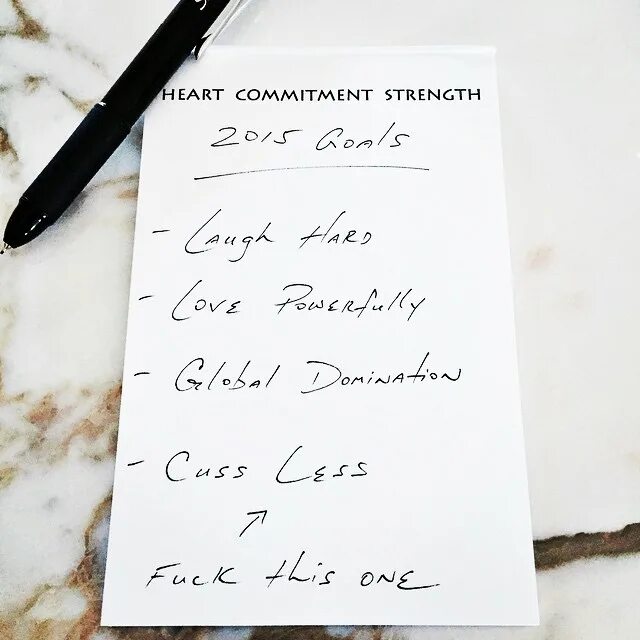 HEART COMMITMENT STRENGTH
2015 Goals
- Laugh Hard
- Love Powerfully
- Global Domination
- Cuss Less
↗
Fuck this one